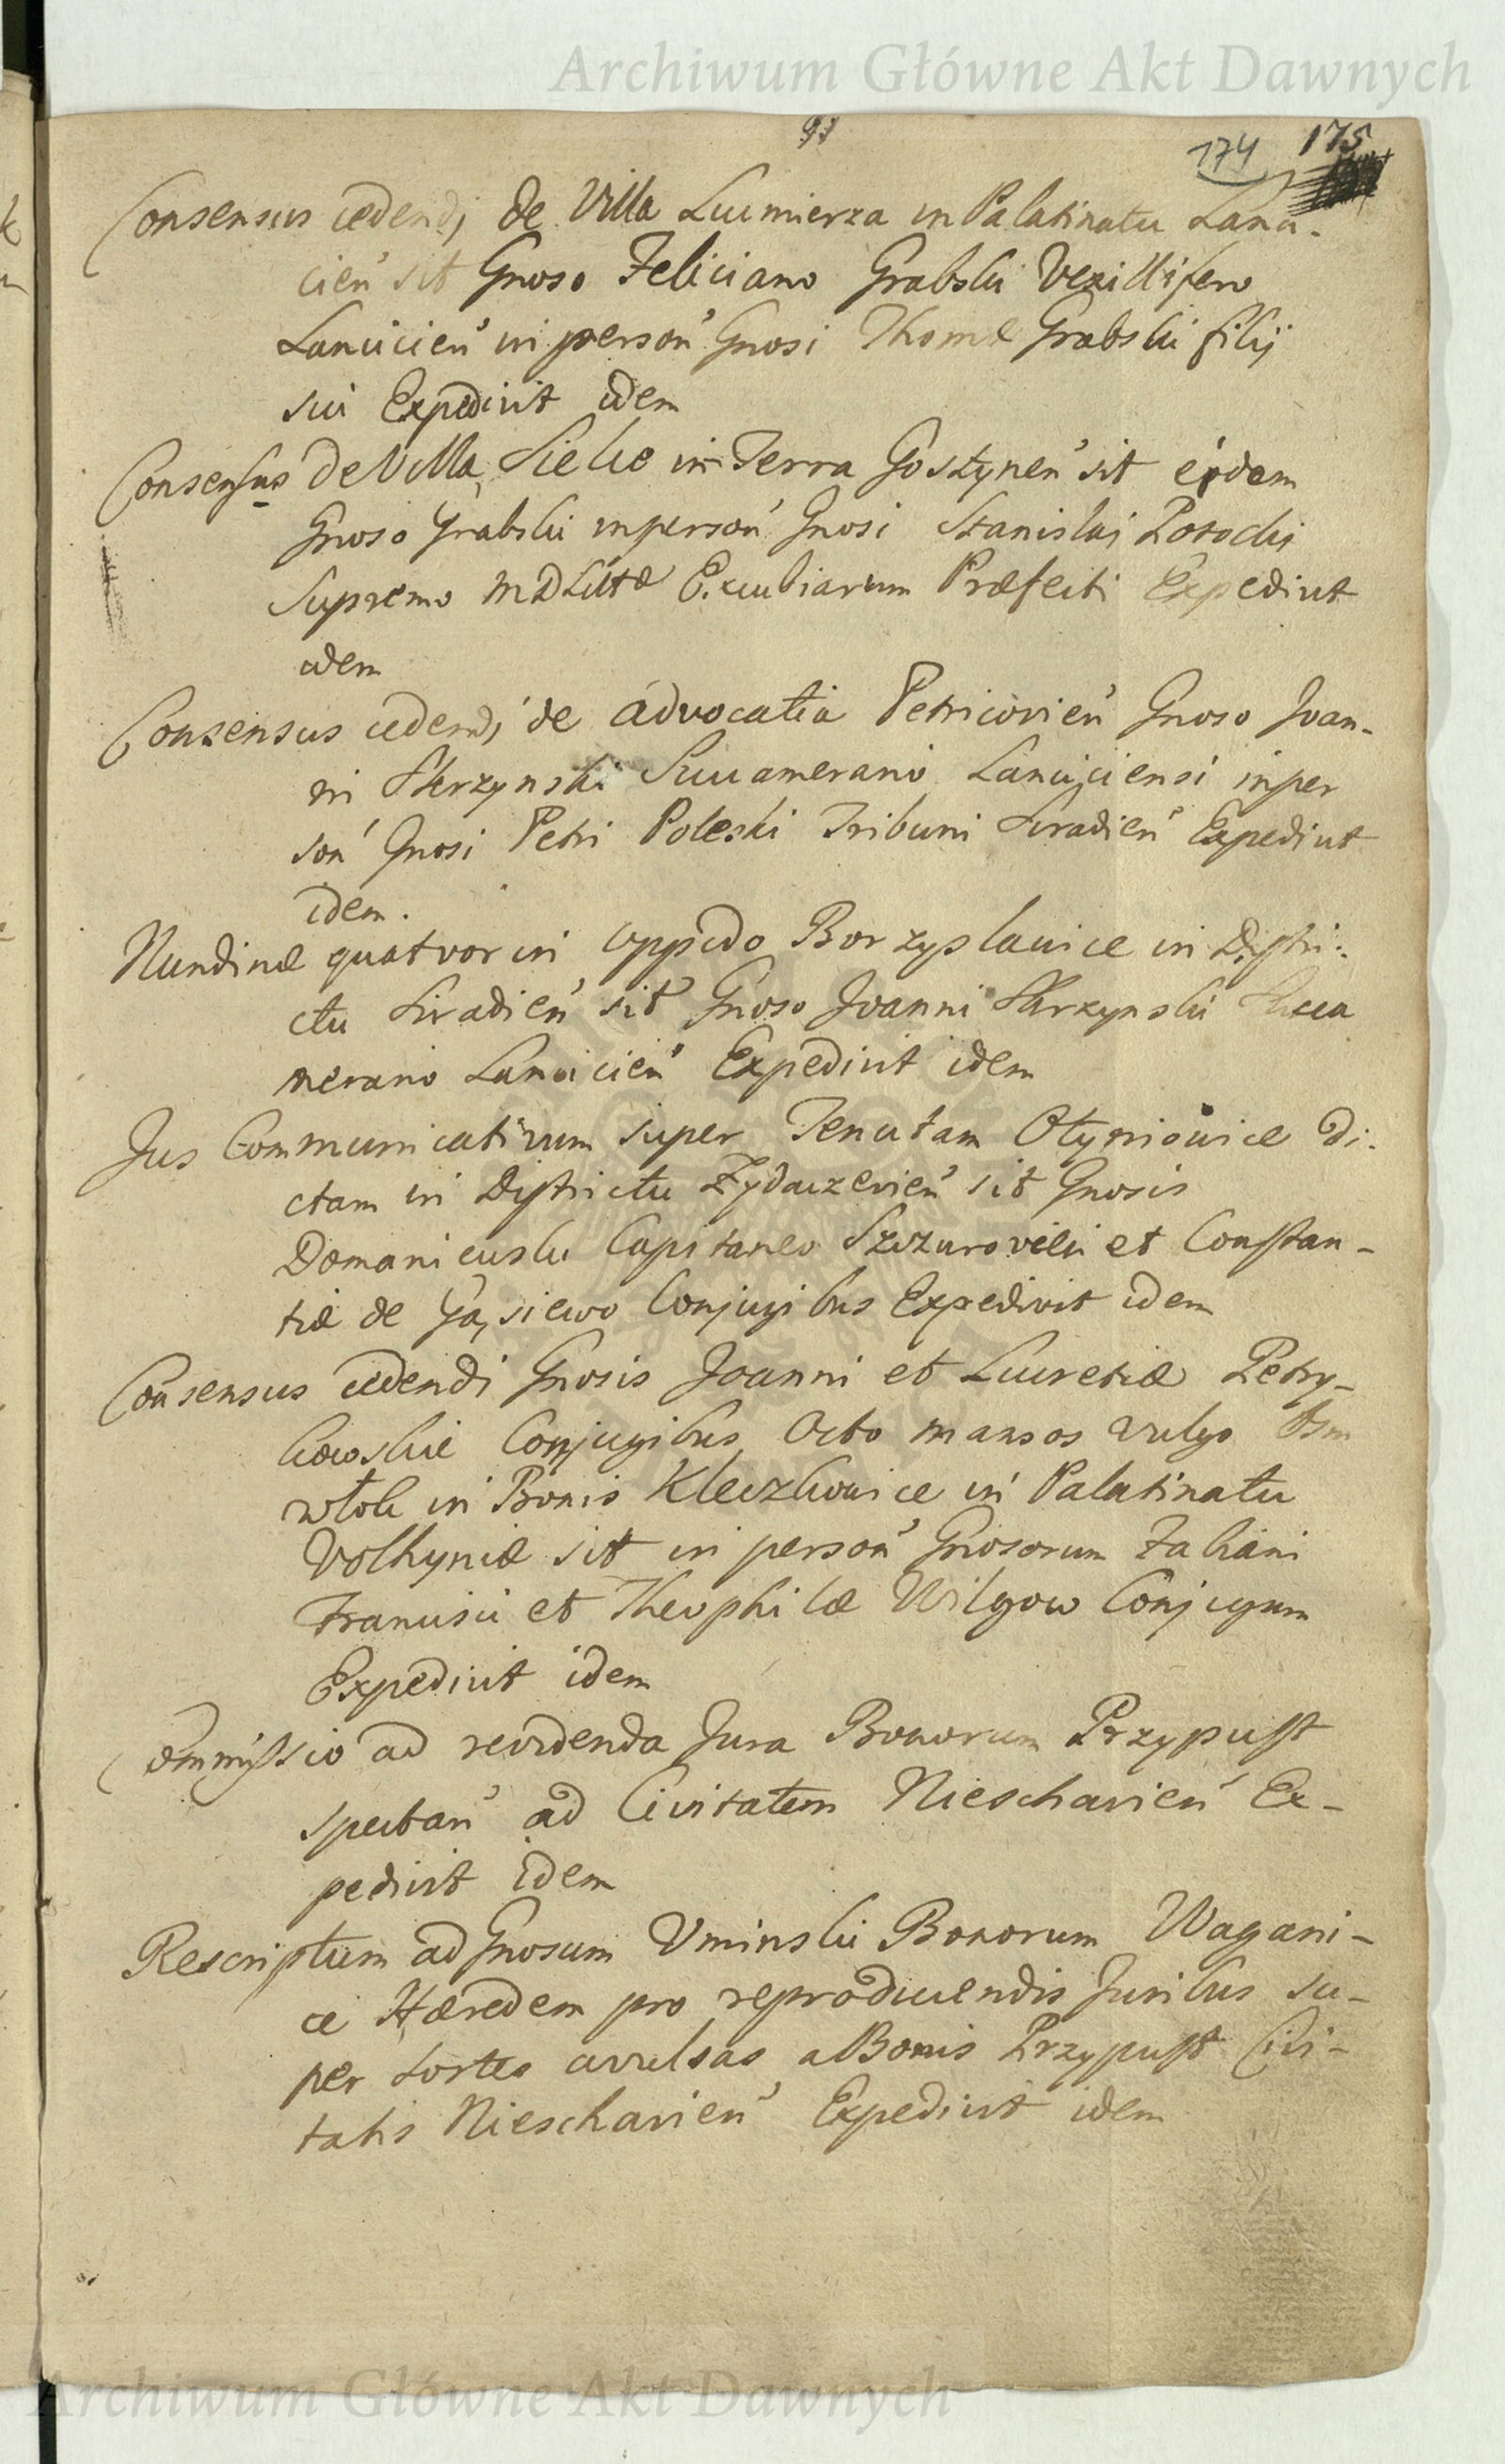 Archiwum Główne Akt Dawnych
91
174 175
Consensus cedendi de Villa Lucmierza in Palatinatu Lanci-
cień sit Gnoso Feliciano Grabski Vexillifero
Lancicień in person Gnosi Thomæ Grabski filij
sui Expedivit idem
Consensus de Villa Sielce in Terra Gostyneń sit eidem
Gnoso Grabski in person Gnosi Stanislai Potocki
Supremo MDLittæ Excubiarum Præfecti Expedivit
idem
Consensus cedendi de advocatia Petricovień Gnoso Joan-
ni Skrzynski Succamerario Lanciciensi in per
son Gnosi Petri Poleski Tribuni Siradień Expedivit
idem.
Nundinæ quatvor in oppido Borzyslavice in Distri-
ctu Siradień sit Gnoso Joanni Skrzynski Succa
merario Lancicień Expedivit idem
Jus Communicativum super Tenutam Otyniovice di-
ctam in Districtu Zydaczevień sit Gnosis
Domaniewski Capitaneo Szczurovicki et Constan-
tiæ de Gąsiewo Conjugibus Expedivit idem
Consensus cedendi Gnosis Joanni et Lucretiæ Petry-
kowskie Conjugibus Octo mansos vulgo Osm
wlok in Bonis Kleczkowice in Palatinatu
Volhyniæ sit in person Gnosorum Fabiani
Francisci et Theophilæ Wilgow Conjugum
Expedivit idem
Commissio ad revidenda Jura Bonorum Przypust
spectan ad Civitatem Nieschavień Ex-
pedivit idem
Rescriptum ad Gnosum Uminski Bonorum Wagani-
ce Hæredem pro reproducendis Juribus su-
per sortes avulsas a Bonis Przypust Civi-
tatis Nieschavień Expedivit idem
Archiwum Główne Akt Dawnych